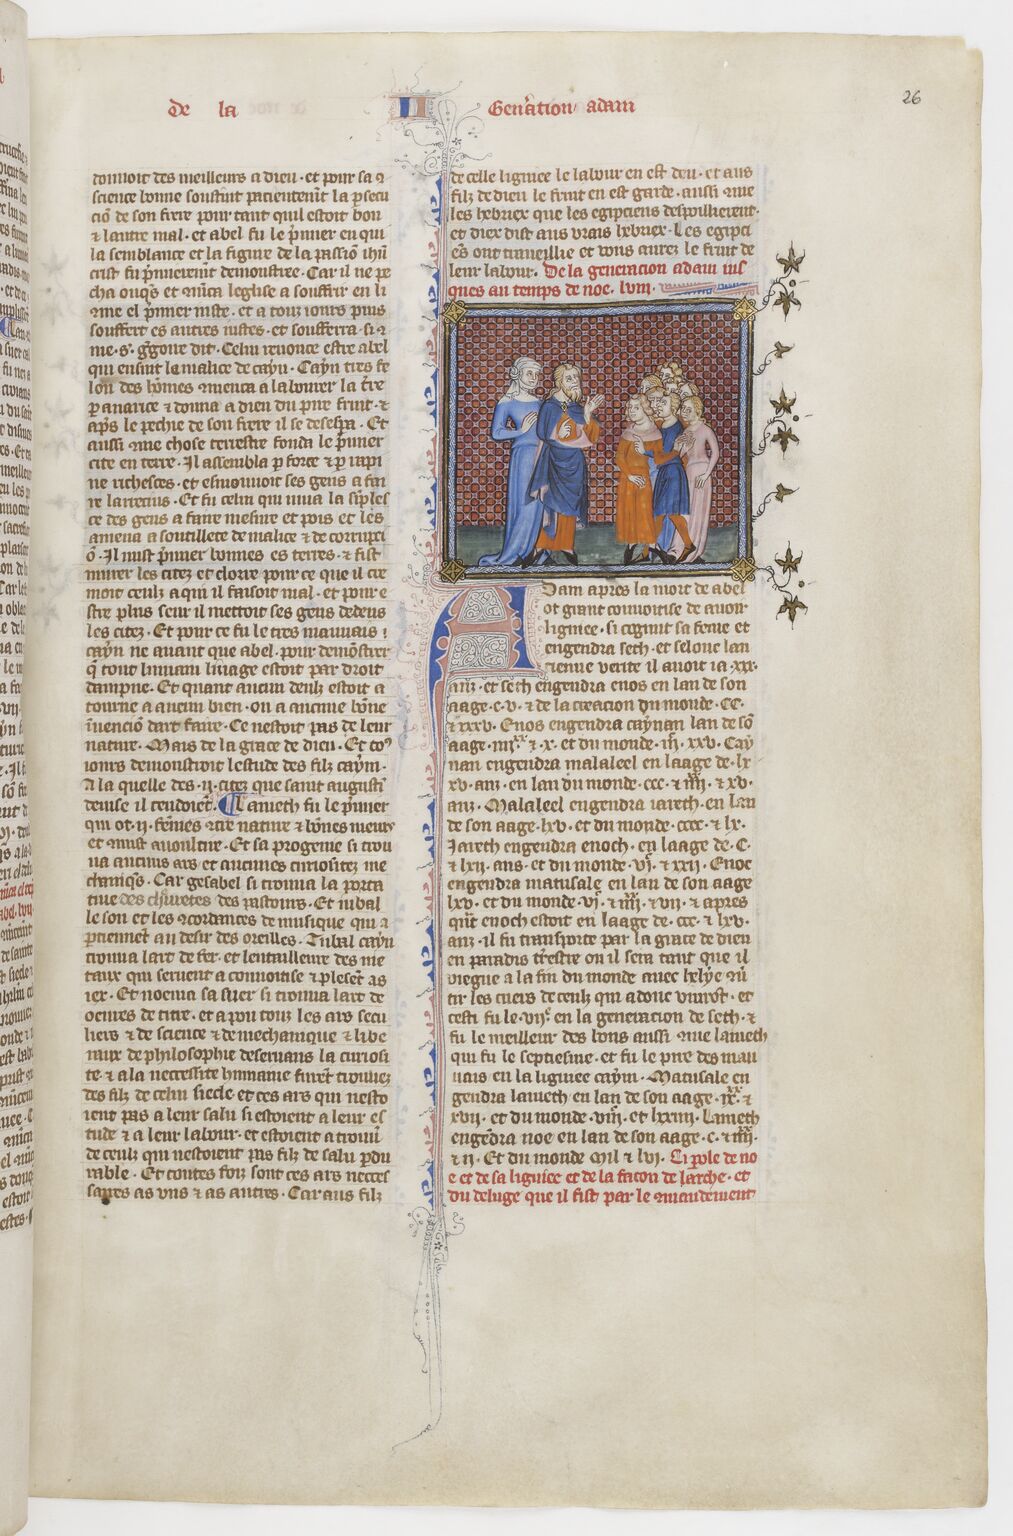 De la
II
Gen̄ation adam
26
donnoit des meilleurs a dieu · et pour sa ꝯ
science bonne soustint pacientem̄t la ꝑsecu
cio᷑ de son frere pour tant quil estoit bon
⁊ lautre mal · et abel fu le p̄mier en qui
la semblance et la figure de la passio᷑ ihū
crist fu p̄mierem̄t demoustree · Car il ne pe
cha onqs et ꝯmc̄a leglise a souffrir en li
ꝯme el p̄mier iuste · et a touz iours puis
souffert es autres iustes · et soufferra · si ꝯ
me · s · ḡgoire dit · Celui renonce estre abel
qui ensuit la malice de cayn · Cayn tres fe
lon des hōmes ꝯmenca a labourer la t̄re
ꝑ auarice ⁊ donna a dieu du pire fruit · ⁊
ap̄s le pechie de son frere il se desespa · Et
aussi ꝯme chose terrestre fonda le p̄mier
cite en terre · Il assembla ꝑ force ⁊ ꝑ rapi
ne richesces · et esmouuoit ses gens a fai
re larrecins · Et fu celui qui mua la sīples
ce des gens a faire mesure et pois et les
amena a soutillete de malice ⁊ de corrupci
o᷑ · Il mist p̄mier bonnes es terres · ⁊ fist
murer les citez et clorre pour ce que il cre
moit ceulz a qui il faisoit mal · et pour e
stre plus seur il mettoit ses gens dedens
les citez · Et pour ce fu le tres mauuais
cayn ne auant que abel · pour demōstrer
q̄ tout humain linage estoit par droit
dampne · Et quant aucun deulz estoit a
tourne a aucun bien · ou a aucune bōne
īuencio᷑ dart faire · Ce nestoit pas de leur
nature · Mais de la grace de dieu · Et to⁹
iours demonstroit lestude des filz caym ·
A la quelle des · ii · citez que saint augusti᷑
deuise il tendoiēt · Lameth fu le p̄mier
qui ot · ii · fēmes ꝯtre nature ⁊ bōnes meurs
et mist auoultire · Et sa progenie si trou
ua aucuns ars · et aucunes curiositez me
chaniqs · Car gesabel si trouua la porta
tiue des chieuretes des pastours · Et iubal
le son et les ꝯcordances de musique qui a
ꝑtiennēt au desir des oreilles · Tubal cayn
trouua lart de fer · et lentailleure des me
taux qui seruent a couuoitise ⁊ plesēt as
iex · Et noema sa suer si trouua lart de
oeuures de titre · et a pou touz les ars secu
liers ⁊ de science ⁊ de mechanique ⁊ libe
raux de philosophie deseruans la curiosi
te · ⁊ a la necessite humaine furēt trouuez
des filz de celui siecle · et ces ars qui nesto
ient pas a leur salu si estoient a leur es
tude ⁊ a leur labour · et estoient a trouū
de ceulz qui nestoient pas filz de salu ꝑdu
rable · Et toutes foiz sont ces ars neces
saires as vns ⁊ as autres · Car aus filz
de celle lignee le labour en est deu · et aus
filz de dieu le fruit en est garde · aussi ꝯme
les hebriex que les egipciens despoillierent ·
et diex dist aus vrais hebriex · Les egipci
ēs ont traueillie et vous aurez le fruit de
leur labour · De la generacion adam ius
ques au temps de noe · lviii ·
Adam apres la mort de abel
ot grant couuoitise de auoir
lignee · si cognut sa feme et
engendra seth · et selonc lan
cienne verite il auoit ia · xxx ·
anz · et seth engendra enos en lan de son
aage · c · v · ⁊ de la creacion du monde · CC ·
⁊ xxxv · Enos engendra caynan lan de so᷑
aage · iiijˣˣ ⁊ · x · et du monde · iij · xxv · Cay
nan engendra malaleel en laage de · lx
xv · anz · en lan du monde · ccc · ⁊ iiij · ⁊ xv ·
anz · Malaleel engendra iareth · en lan
de son aage · lxv · et du monde · cccc · ⁊ lx ·
Jareth engendra enoch · en laage de · C ·
⁊ lxii · ans · et du monde · vj · ⁊ xxii · Enoc
engendra matusale en lan de son aage
lxv · et du monde · vj · ⁊ iiij · ⁊ vii · ⁊ apres
qūt enoch estoit en laage de · ccc · ⁊ lxv ·
anz · il fu transporte par la grace de dieu
en paradis t̄restre ou il sera tant que il
viegne a la fin du monde auec helye ꝯū
tir les cuers de ceulz qui adonc viuro᷑t · et
cesti fu le · vijᵉ en la generacion de seth · ⁊
fu le meilleur des bons aussi ꝯme lameth
qui fu le septiesme · et fu le pire des mau
uais en la lignee caym · Matusale en
gendra lameth en lan de son aage · ixˣˣ ⁊
xvij · et du monde · viij · et lxxiiij · Lameth
engēdra noe en lan de son aage · c · ⁊ iiij ·
⁊ ii · Et du monde mil ⁊ lvj · Ci ꝑole de no
e et de sa lignee et de la facon de larche · et
du deluge que il fist par le ꝯmandement